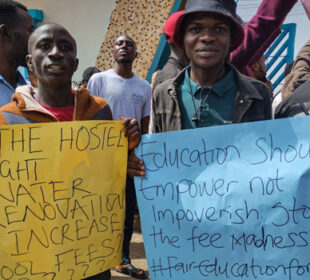 THE HOSTEL
WATER
RENOVATION
INCREASE
FEES?
????
Education Shou
Empower not
Impoverish. Stop
the fee madness
#faireducationfor